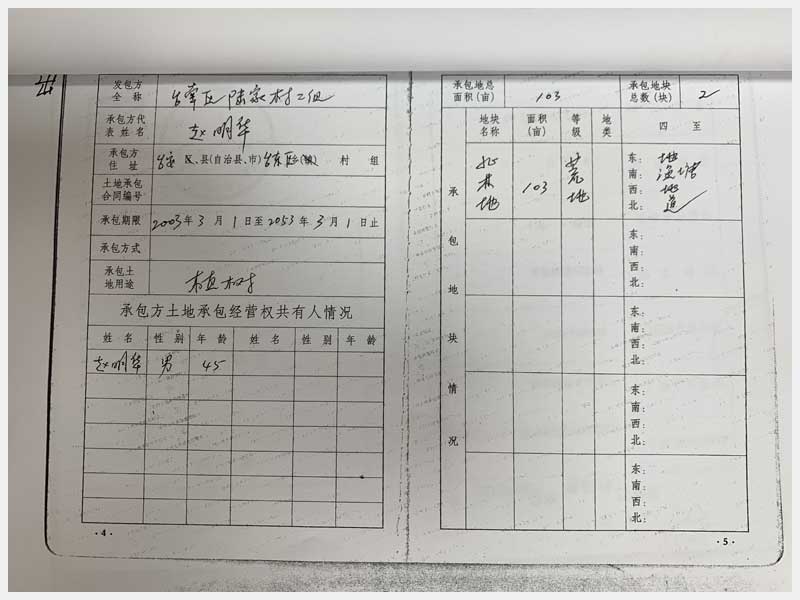 发包方全称 区陆家村二组
承包方代表姓名 赵明华
承包方住址 区、县(自治县、市) 乡(镇) 村 组
土地承包合同编号
承包期限 2003年3月1日至2053年3月1日止
承包方式
承包土地用途 植树
承包方土地承包经营权共有人情况
姓名 性别 年龄 姓名 性别 年龄
赵明华 男 45
·4·
承包地总面积(亩) 103 承包地块总数(块) 2
承包地块情况
地块名称 面积(亩) 等级 地类 四至
林地 103 荒地
东: 地
南: 渔塘
西: 地
北: 道
东:
南:
西:
北:
东:
南:
西:
北:
东:
南:
西:
北:
东:
南:
西:
北:
·5·